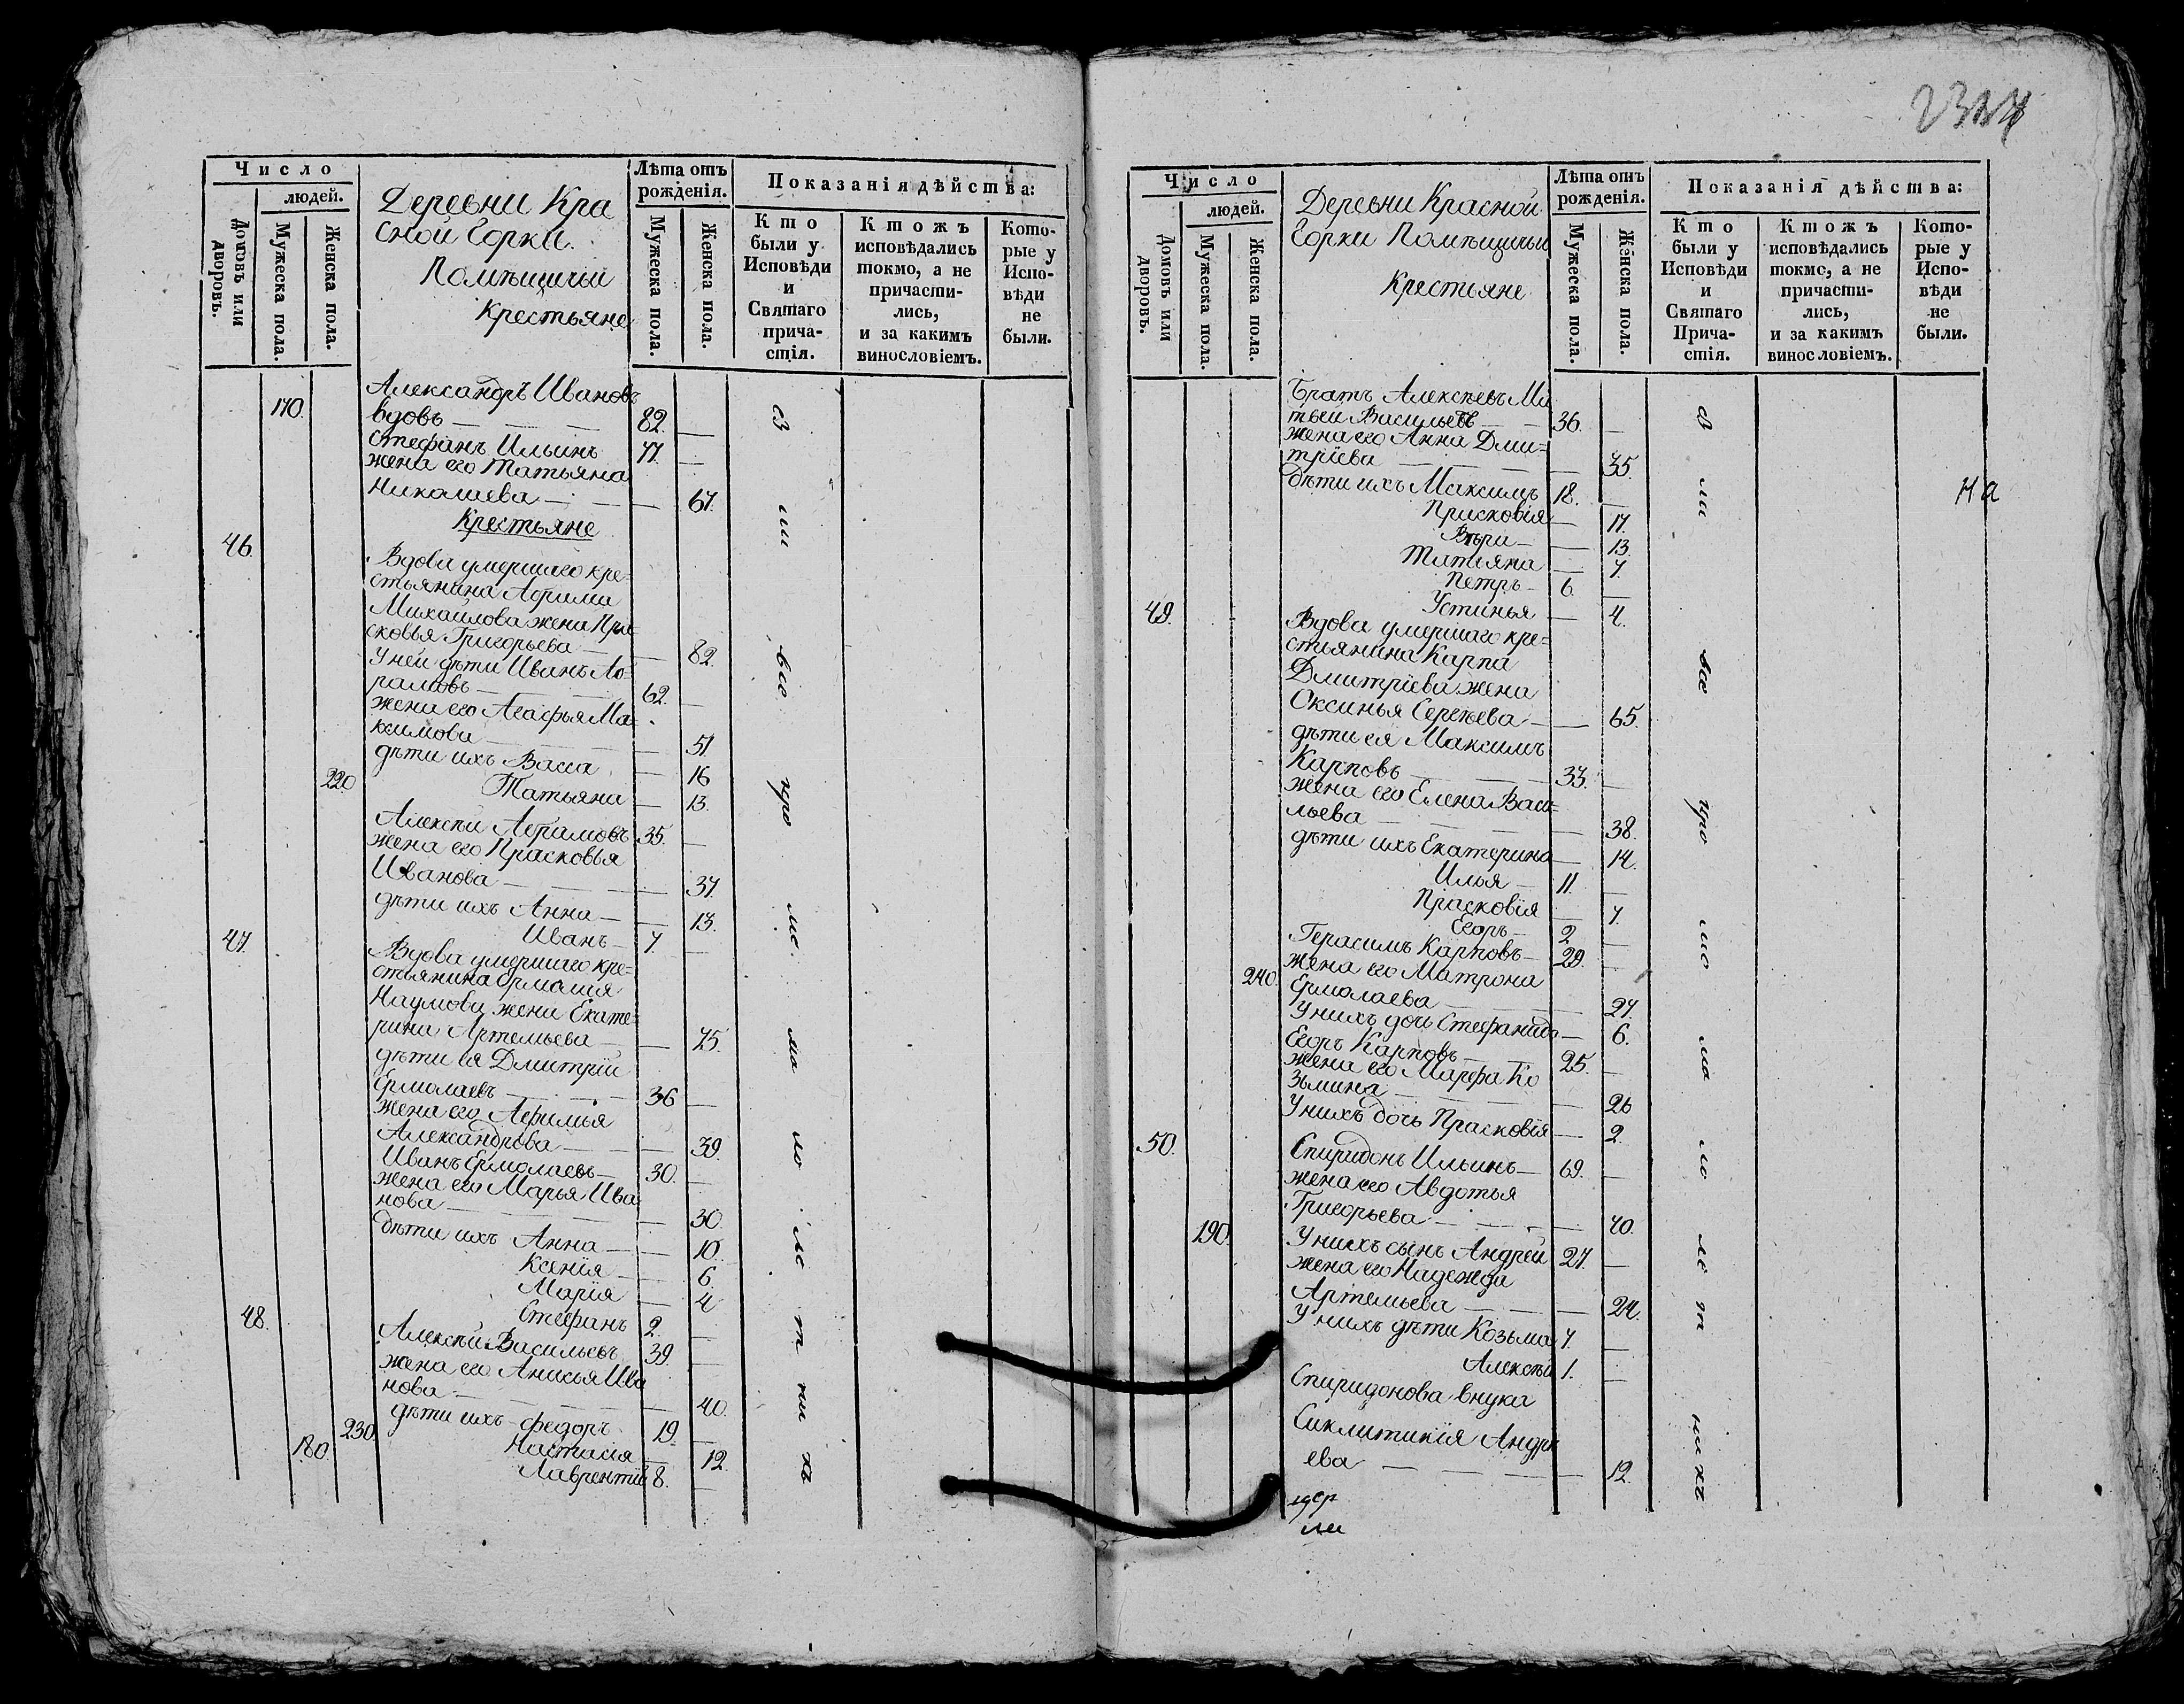 Число
людей.
Домовъ или дворовъ.
Мужеска пола.
Женска пола.
Деревни Кра
сной Горки.
Помѣщичьи
Крестьяне
Лѣта отъ
рожденія.
Мужеска пола.
Женска пола.
Показанія дѣйства:
Кто
были у
Исповѣди
и
Святаго
прича-
стія.
Ктожъ
исповѣдались
токмо, а не
причасти-
лись,
и за какимъ
винословіемъ.
Кото-
рые у
Испо-
вѣди
не
были.
Александръ Ивановъ
170. вдовъ — 82. —
Стефанъ Ильинъ 77. —
жена его Татьяна
Николаева — — 67.
Крестьяне
46.
Вдова умершаго кре=
стьянина Аврама
Михайлова жена Пра
сковья Григорьева — — 82.
У ней дѣти Иванъ Ав=
рамовъ — 62. —
жена его Агафья Ма=
ксимова — — 51
дѣти ихъ Васса — 16
220 Татьяна — 13.
Алексѣй Аврамовъ 35. —
жена его Прасковья
Иванова — — 37.
дѣти ихъ Анна — — 13.
Иванъ — 7. —
47.
Вдова умершаго кре=
стьянина Ермолая
Наумова жена Екате=
рина Артемьева — — 75.
дѣти ея Дмитрій
Ермолаевъ — 36 —
жена его Афимья
Александрова — — 39.
Иванъ Ермолаевъ — 30. —
жена его Марья Ива
нова — — 30.
дѣти ихъ Анна — — 10.
Ксенія — — 6.
Марія — 4
Стефанъ 2. —
48.
Алексѣй Васильевъ 39. —
жена его Анисья Ива
нова — — 40.
дѣти ихъ Федоръ 19. —
230. Настасія — 12.
180. Лаврентій 8. —
2324
Число
людей.
Домовъ или дворовъ.
Мужеска пола.
Женска пола.
Деревни Красной
Горки Помѣщичьи
Крестьяне
Лѣта отъ
рожденія.
Мужеска пола.
Женска пола.
Показанія дѣйства:
Кто
были у
Исповѣди
и
Святаго
Прича-
стія.
Ктожъ
исповѣдались
токмо, а не
причасти-
лись,
и за какимъ
винословіемъ.
Кото-
рые у
Испо-
вѣди
не
были.
Братъ Алексѣевъ Ма
твей Васильевъ — 36. —
жена его Анна Дми=
тріева — — 35.
дѣти ихъ Максимъ 18. —
На
Прасковія — 17.
Вѣра — — 13.
Татіяна — 7.
Петръ — 6. —
Устинья — — 4.
49.
Вдова умершаго кре=
стьянина Карпа
Дмитріева жена
Оксинья Сергѣева — — 65.
дѣти ея Максимъ
Карповъ — 33. —
жена его Елена Васи=
льева — — 38.
дѣти ихъ Екатерина — 14.
Илья — 11. —
Прасковія — 7.
Егоръ — 2 —
Герасимъ Карповъ — 29. —
жена его Матрона
240. Ермолаева — — 27.
У нихъ дочь Стефанида — 6.
Егоръ Карповъ — 25. —
жена его Марфа Ко
зьмина — — 26
У нихъ дочь Прасковія — 2.
50.
Спиридонъ Ильинъ — 69. —
жена его Авдотья
Григорьева — — 70.
190. У нихъ сынъ Андрей 27. —
жена его Надежда
Артемьева — — 24.
У нихъ дѣти Козьма 7. —
Алексѣй 1. —
Спиридонова внука
Сиклитикія Андре
ева — — 12.